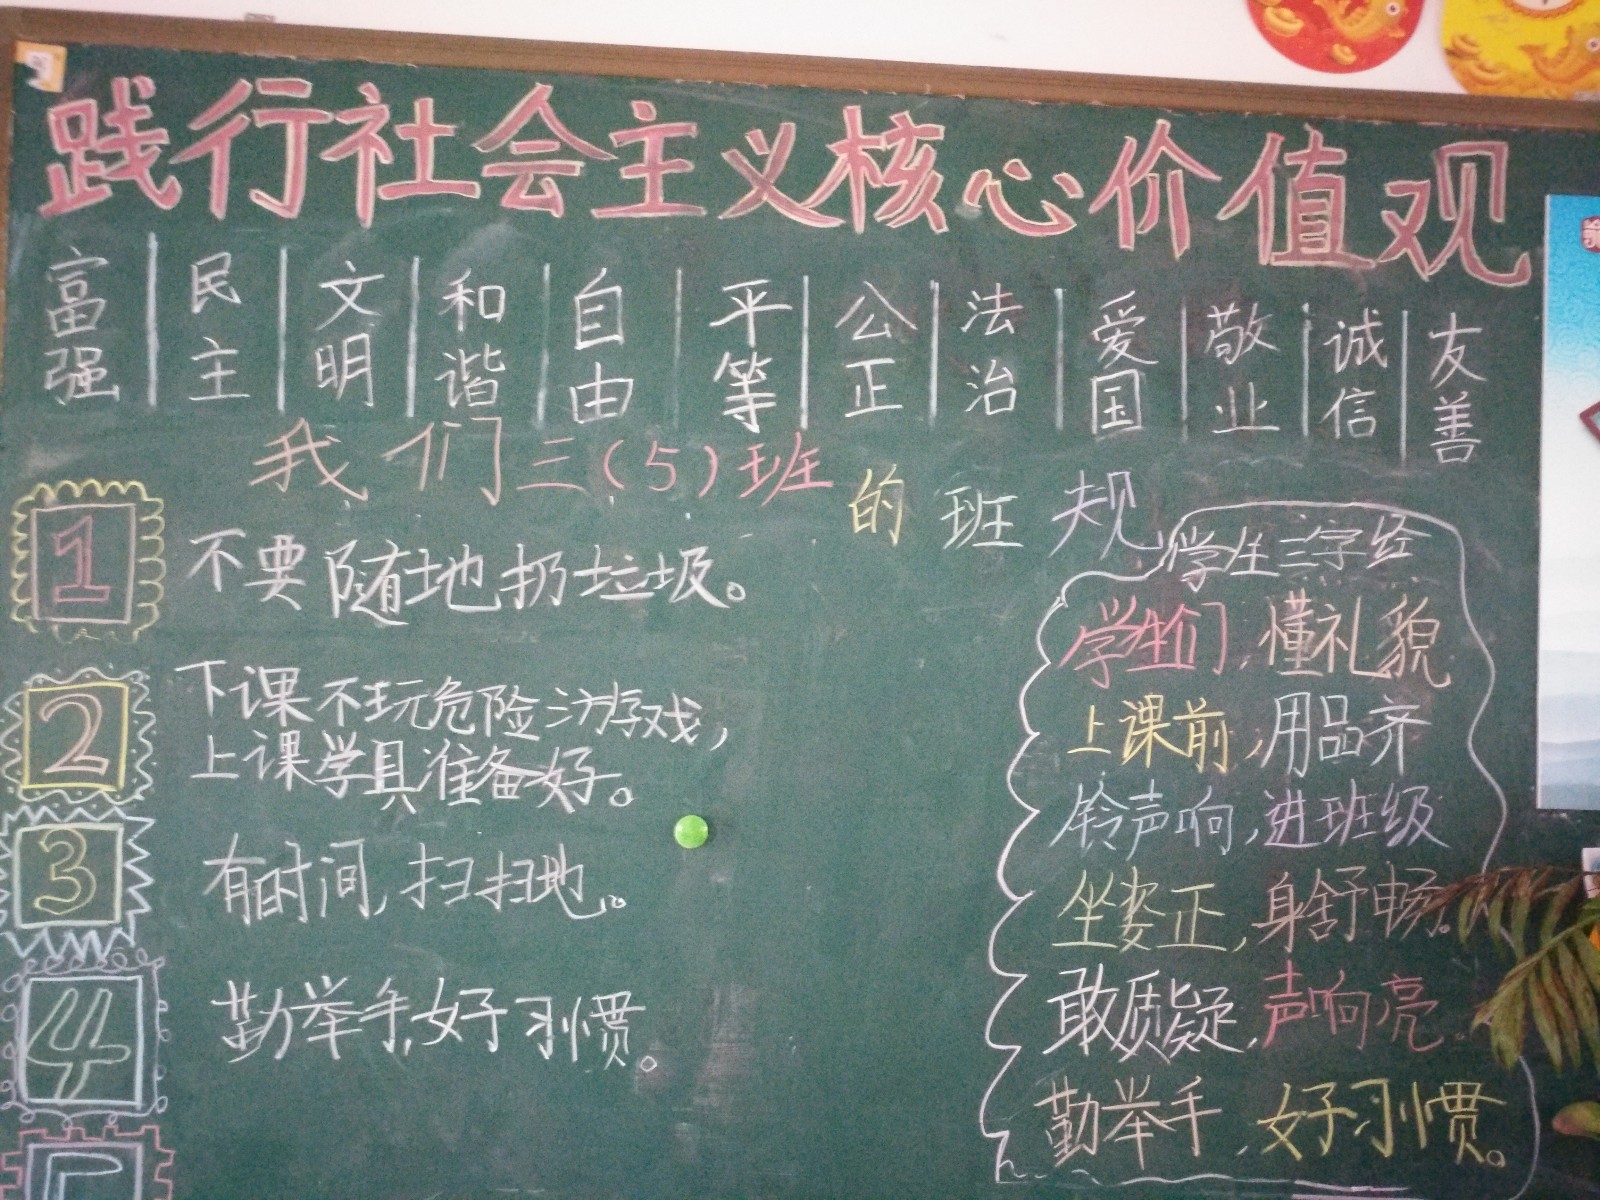 践行社会主义核心价值观
富强 民主 文明 和谐 自由 平等 公正 法治 爱国 敬业 诚信 友善
我们三(5)班的班规
1 不要随地扔垃圾。
2 下课不玩危险游戏,
上课学具准备好。
3 有时间,扫扫地。
4 勤举手,好习惯。
学生三字经
学生们,懂礼貌
上课前,用品齐
铃声响,进班级
坐姿正,身舒畅。
敢质疑,声响亮。
勤举手,好习惯。